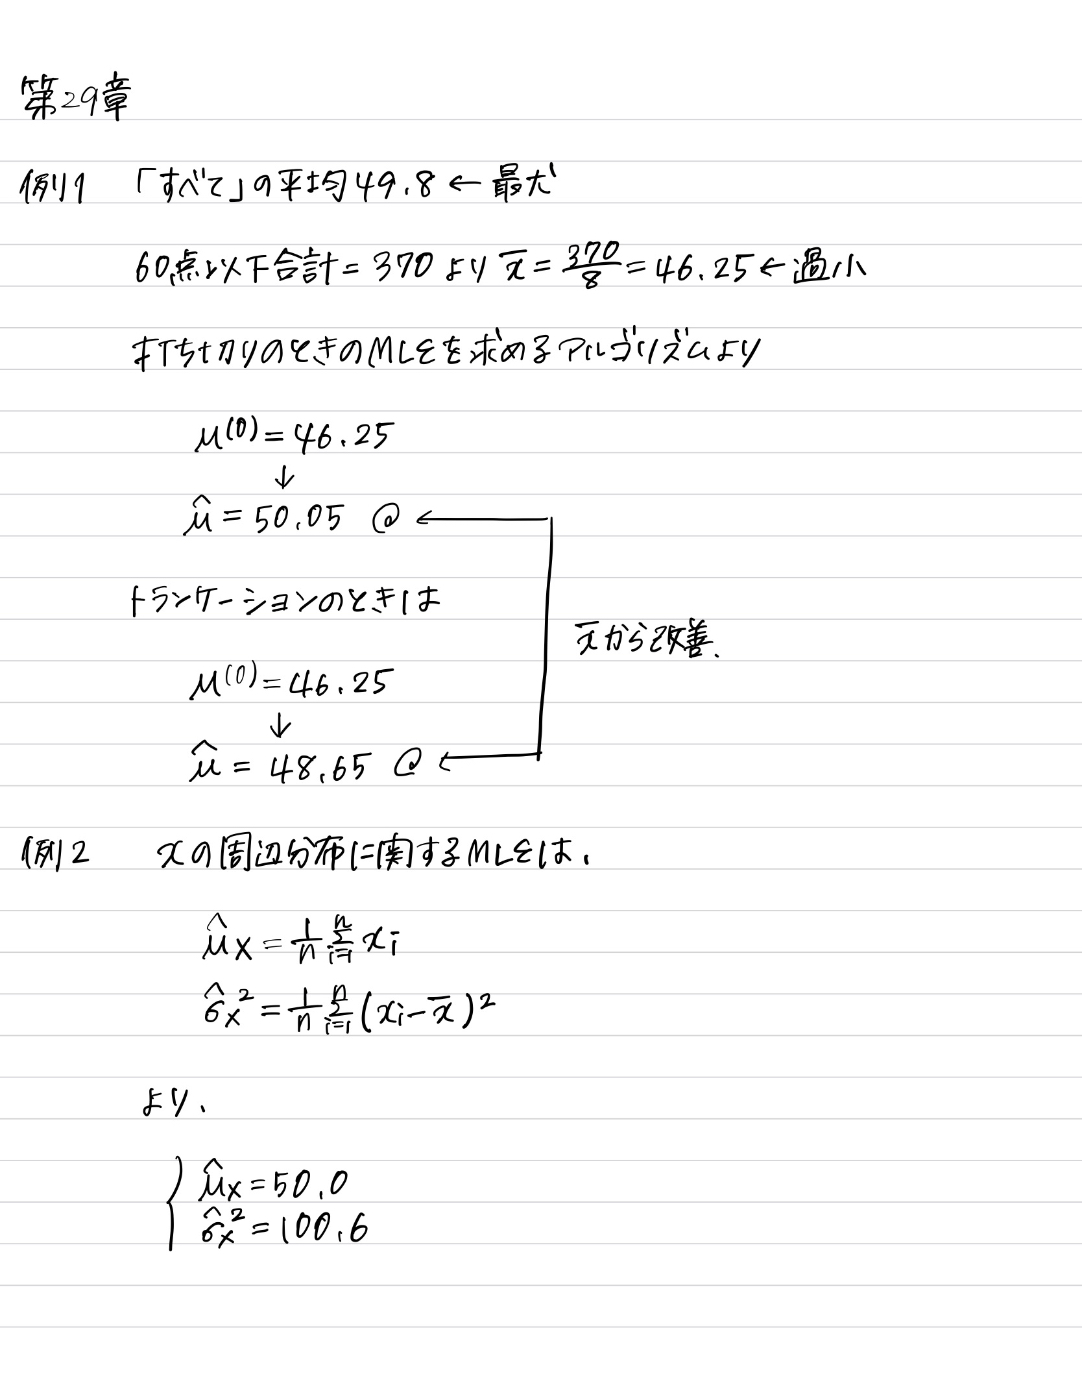 第29章
例1 「すべて」の平均49.8 ← 最尤
60点以下合計 = 370 より x̄ = 370/8 = 46.25 ← 過小
打ち切りのときのMLEを求めるアルゴリズムより
μ^(0) = 46.25
↓
μ̂ = 50.05 @ ←
トランケーションのときは
x̄から改善.
μ^(0) = 46.25
↓
μ̂ = 48.65 @ ←
例2 xの周辺分布に関するMLEは、
μ̂x = 1/n Σ_{i=1}^{n} xi
σ̂x² = 1/n Σ_{i=1}^{n} (xi - x̄)²
より、
μ̂x = 50.0
σ̂x² = 100.6